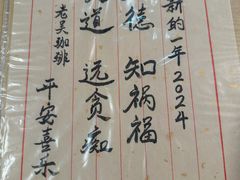 新的一年2024
德 知祸福
道 远贪痴
老吴珈琲
平安喜乐